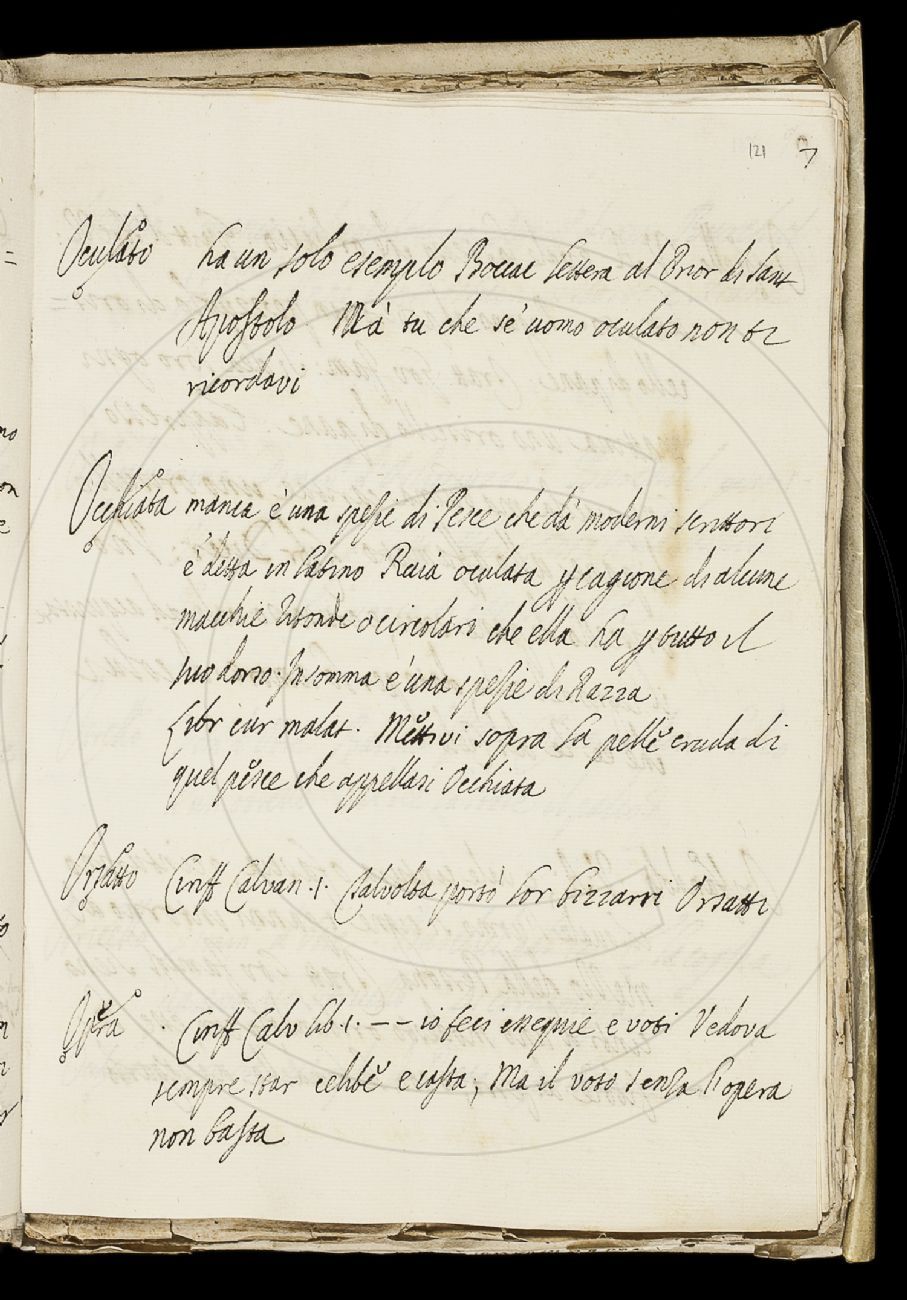 121 7
Oculato ha un solo esemplo Boccac lettera al Prior di Sant
Apostolo Mà tu che sè uomo oculato non ti
ricordavi
Occhiata manca è una spesie di Pesce che dà moderni scrittori
è detta in latino Raia oculata p cagione di alcune
macchie ritonde o circolari che ella ha p tutto il
suo dorso. Insomma è una spesie di Razza
Libr cur malat. Mettivi sopra la pelle cruda di
quel pesce che appellasi Occhiata
Orsatto Ciriff Calvan. 1. Talvolta portò lor bizzarri Orsatti
Opera Ciriff Calv lib. 1. -- io feci essequie e voti Vedova
sempre star celibe e casta, Ma il voto senza l'opera
non basta